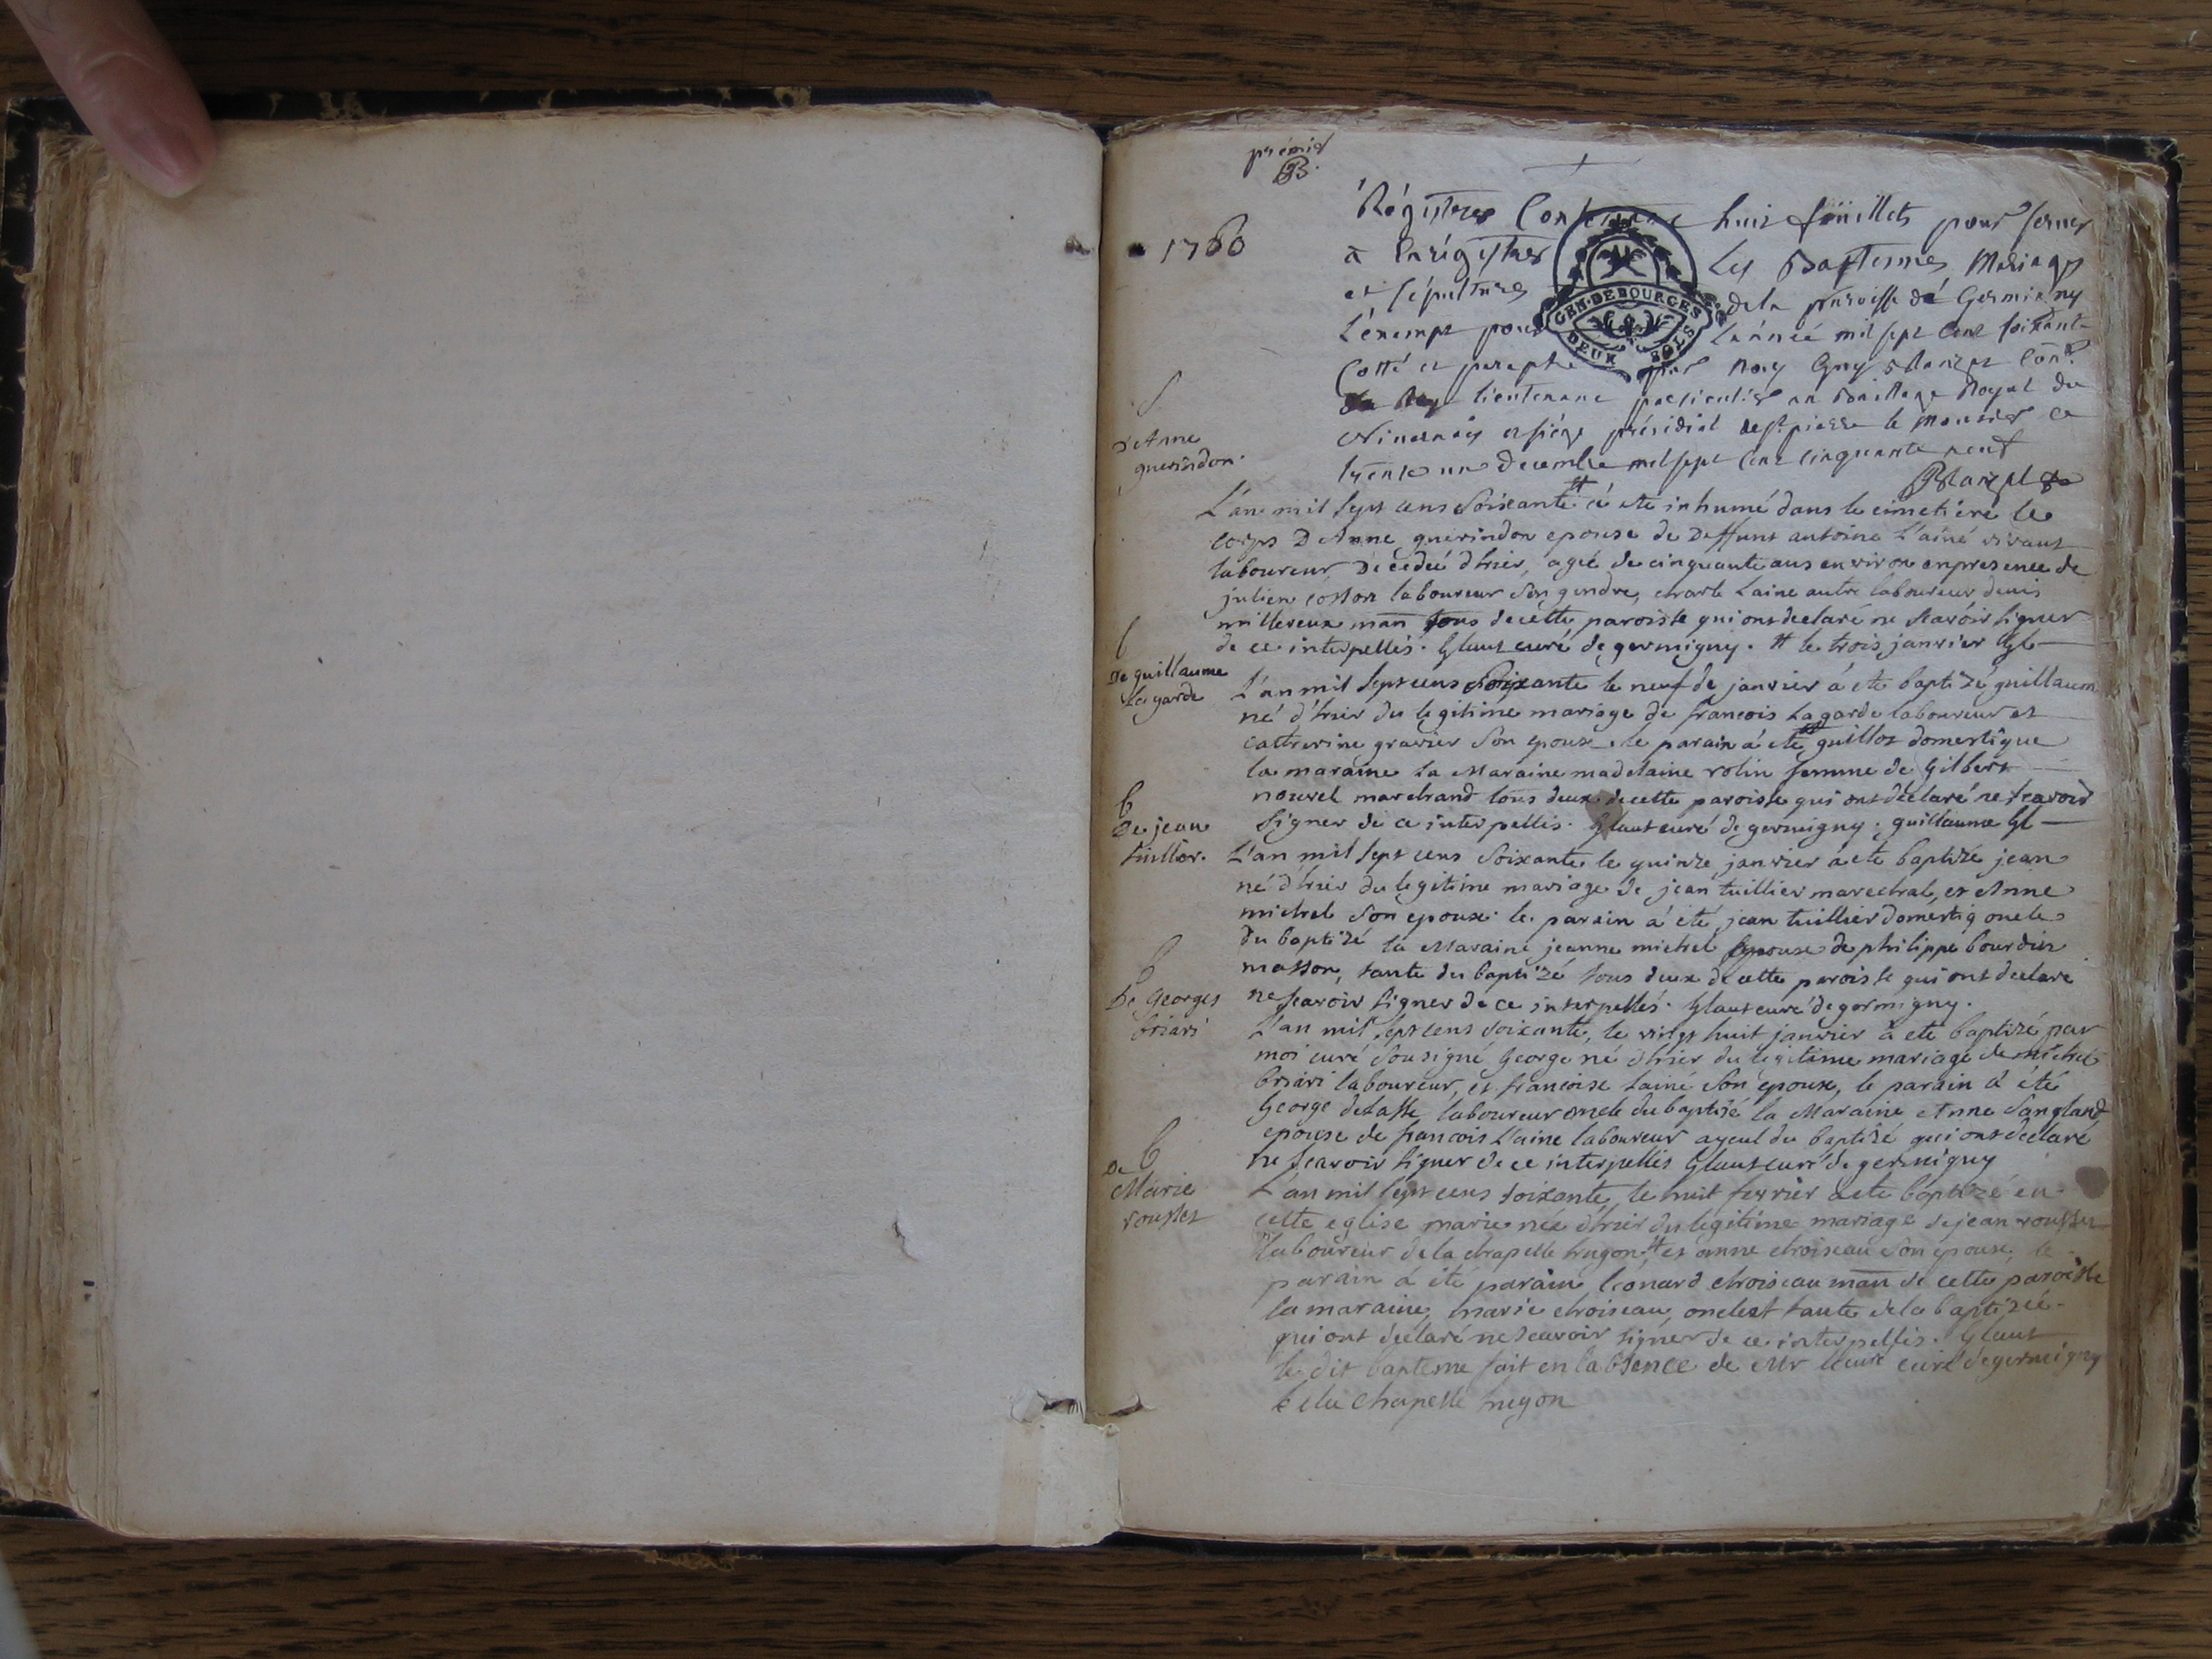 premier
1760
Régistre Contenant huit feüillets pour servir
a Enrégistrer Les Baptesmes Mariages
et sépultures dela paroisse de Germigny
L'éxempt pour L'année mil sept Cent soixante
Cotté et paraphé par Nous Guy
lieutenant particulier au Bailliage Royal du
Nivernois et siége présidial de st pierre le Moustier ce
trente un Decembre mil sept Cent cinquante neuf
GEN. DE BOURGES
DEUX SOLS
S
D'Anne
guerindon.
L'an mil sept cens Soixante # a été inhumé dans le cimetiére le
corps D'Anne guerindon epouse de Deffunt antoine L'ainé vivant
laboureur Décedée d'hier, agée de cinquante ans environ en presence de
julien cosson laboureur Son gendre, charle Lainé autre laboureur denis
millereux man tous de cette paroisse qui ont declaré ne scavoir signer
de ce interpellés. Glaut curé de germigny. # le trois janvier Gl
b
De guillaume
Lagarde
L'an mil sept cens Soixante le neuf de janvier à eté baptizé guillaum
né d'hier du legitime mariage de francois Lagarde laboureur et
catherine gravier Son epouse. le parain à eté guillot domestique
la maraine La Maraine madelaine rolin femme de Gilbert
nouvel marchand tous deux de cette paroisse qui ont déclaré ne scavoir
signer de ce interpellés. Glaut curé de germigny. guillaume Gl
b
De jean
tuillier.
L'an mil sept cens Soixante le quinze janvier à eté baptizé jean
né d'hier du legitime mariage de jean tuillier marechal, et Anne
michel Son epouse. le parain à été jean tuillier domestiq oncle
du baptizé la Maraine jeanne michel Epouse de philippe bourdin
masson, tante du baptizé tous deux de cette paroisse qui ont declaré
ne scavoir signer de ce interpellés. Glaut curé de germigny.
b
De Georges
briari
L'an mil sept cens soixante, le vingt huit janvier à eté baptizé par
moi curé Sousigné George né d'hier du legitime mariage de michel
briari laboureur, et francoise Lainé Son epouse, le parain à été
George delasse laboureur oncle du baptizé la Maraine Anne Sangland
epouse de francois L'aine laboureur ayeul du baptizé qui ont declaré
ne scavoir signer de ce interpellés Glaut curé de germigny
b
De
Marie
rousset
L'an mil sept cens soixante, le huit fevrier à eté baptizé en
cette eglise marie née d'hier du legitime mariage de jean rousset
laboureur de la chapelle hugon # et anne choiseau Son epouse, le
parain à été parain leonard choiseau man de cette paroisse
la maraine, marie choiseau, oncle et tante de la baptizée.
qui ont declaré ne scavoir signer de ce interpellés. Glaut
le dit bapteme fait en labsence de Mr curé de germigny
de la Chapelle hugon